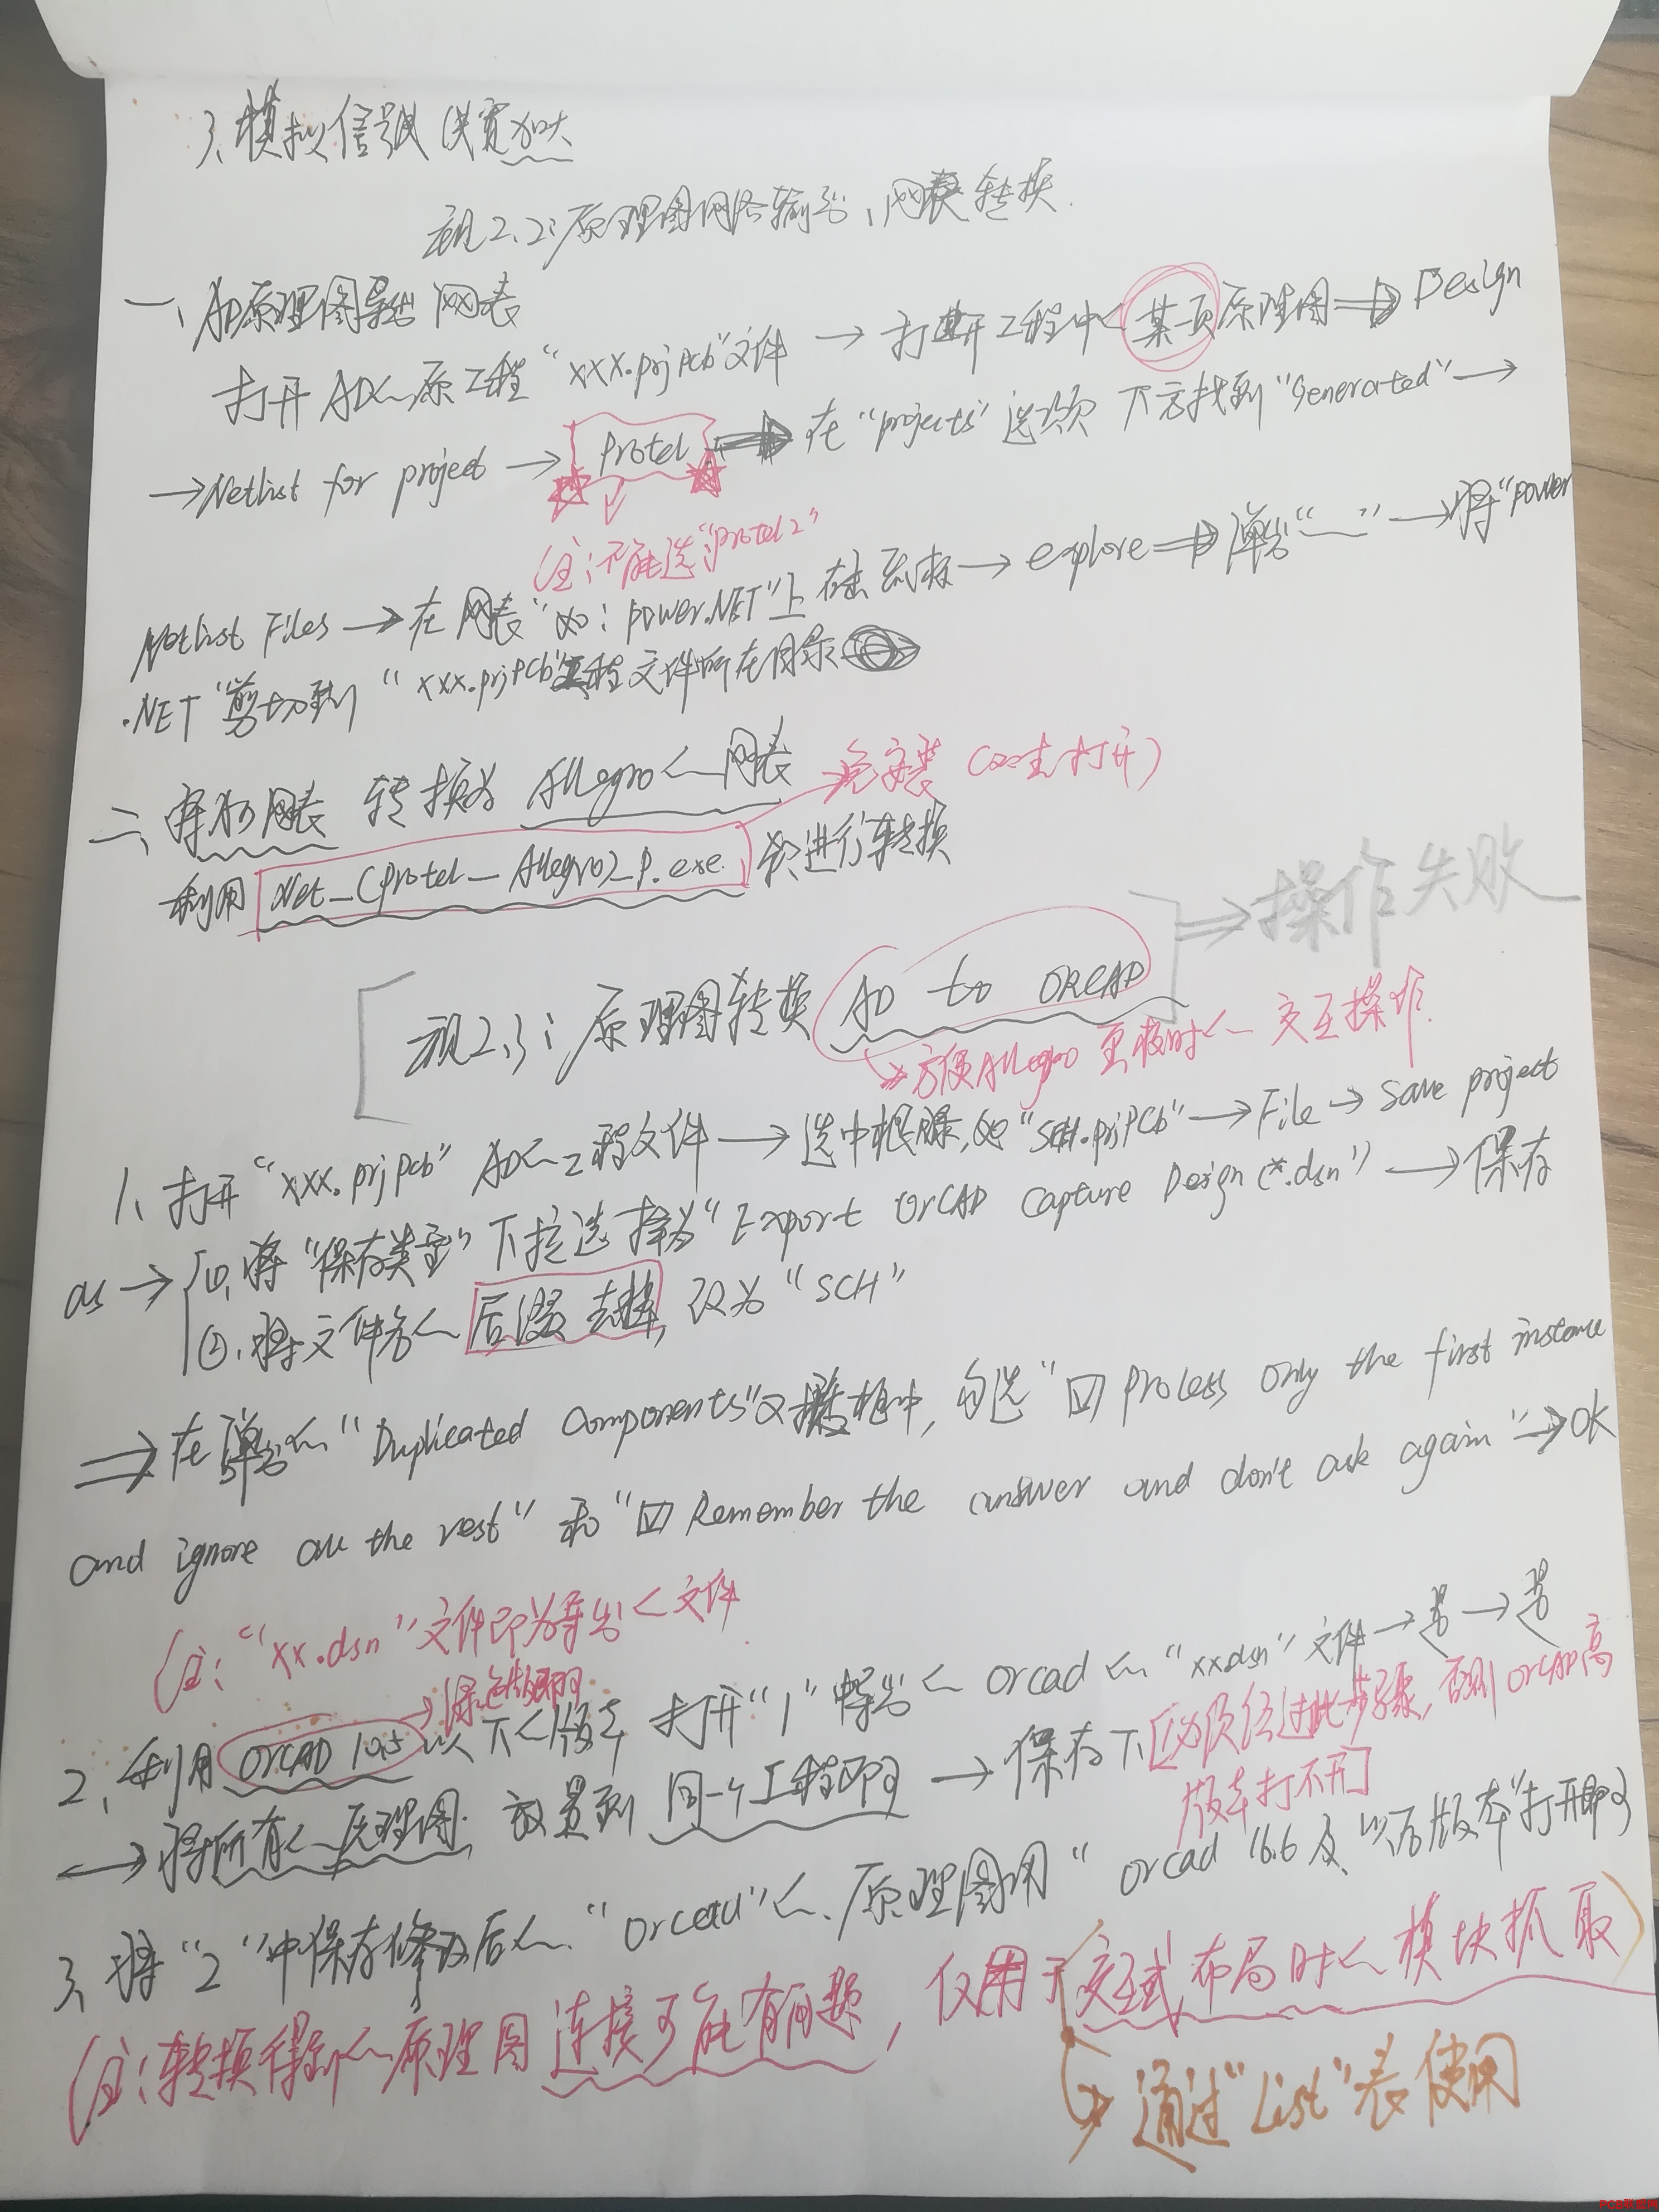 3、模拟信号线宽加大
视2.2:原理图网络输出、网表转换.
一、AD原理图导出网表
打开AD的原工程“xxx.prjPcb”文件 → 打开工程中的某一页原理图 ⇒ Design
→ Netlist for project → Protel ⇒ 在“projects”选项下方找到“Generated” →
(注:不能选“Protel2”
Netlist Files → 在网表“如:power.NET”上右击鼠标 → explore ⇒ 弹出“—” → 将“power
.NET”剪切到“xxx.prjPCb”工程文件所在目录
二、再将网表转换为Allegro的网表 → 免安装(双击打开)
利用 Net_(Protel_Allegro)_P.exe. 来进行转换
⇒ 操作失败
视2.3:原理图转换 AD to ORCAD
→ 方便Allegro 的交互操作.
1、打开“xxx.prjPcb”AD的工程文件 → 选中根目录,如“SCH.prjPCb” → File → Save project
as → ①.将“保存类型”下拉选择为“Export OrCAD Capture Design(*.dsn)” → 保存
②.将文件名的后缀去掉,改为“SCH”
⇒ 在弹出的“Duplicated Components”对话框中,勾选“☑ Process only the first instance
and ignore all the rest”和“☑ Remember the answer and don't ask again” → OK
(注:“xx.dsn”文件即为导出的文件
→ 绿色版即可
2、利用 OrCAD 10.5 以下的版本打开“1”中导出的 orcad 的“xx.dsn”文件 → 是 → 是
→ 将所有的原理图放置到同一个工程即可 → 保存下 [必须经过此步骤,否则ORCAD高
版本打不开]
3、将“2”中保存修改后的“orcad”的原理图用“orcad 16.6及以后版本”打开即可
(注:转换得到的原理图连接可能有问题,仅用于交互式布局时的模块抓取)
→ 通过“List”表使用